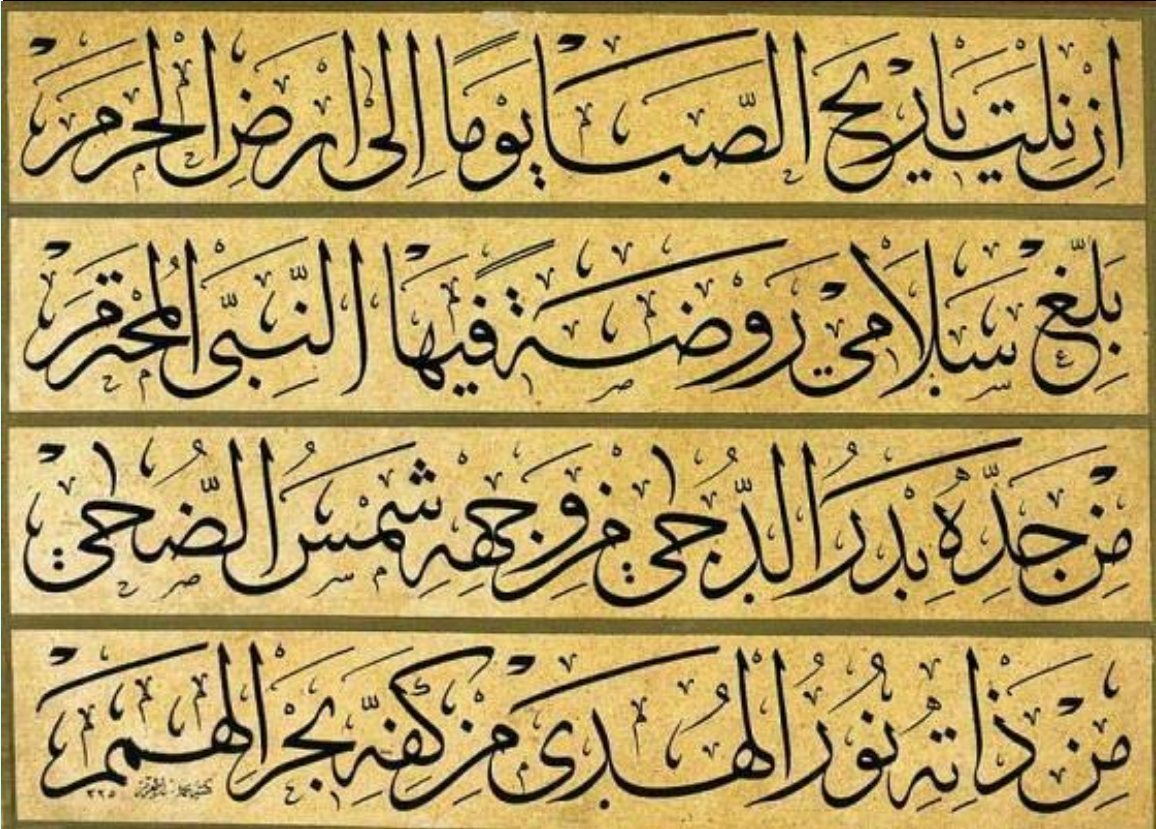 اِنْ نِلْتَ يَا رِيحَ الصَّبَا يَوْمًا اِلٰى اَرْضِ الْحَرَمْ
بَلِّغْ سَلَامِي رَوْضَةً فِيهَا النَّبِيُّ الْمُحْتَرَمْ
مِنْ خَدِّهِ بَدْرُ الدُّجٰى مِنْ وَجْهِهِ شَمْسُ الضُّحٰى
مِنْ ذَاتِهِ نُورُ الْهُدَى مِنْ كَفِّهِ بَحْرُ الْهِمَمْ